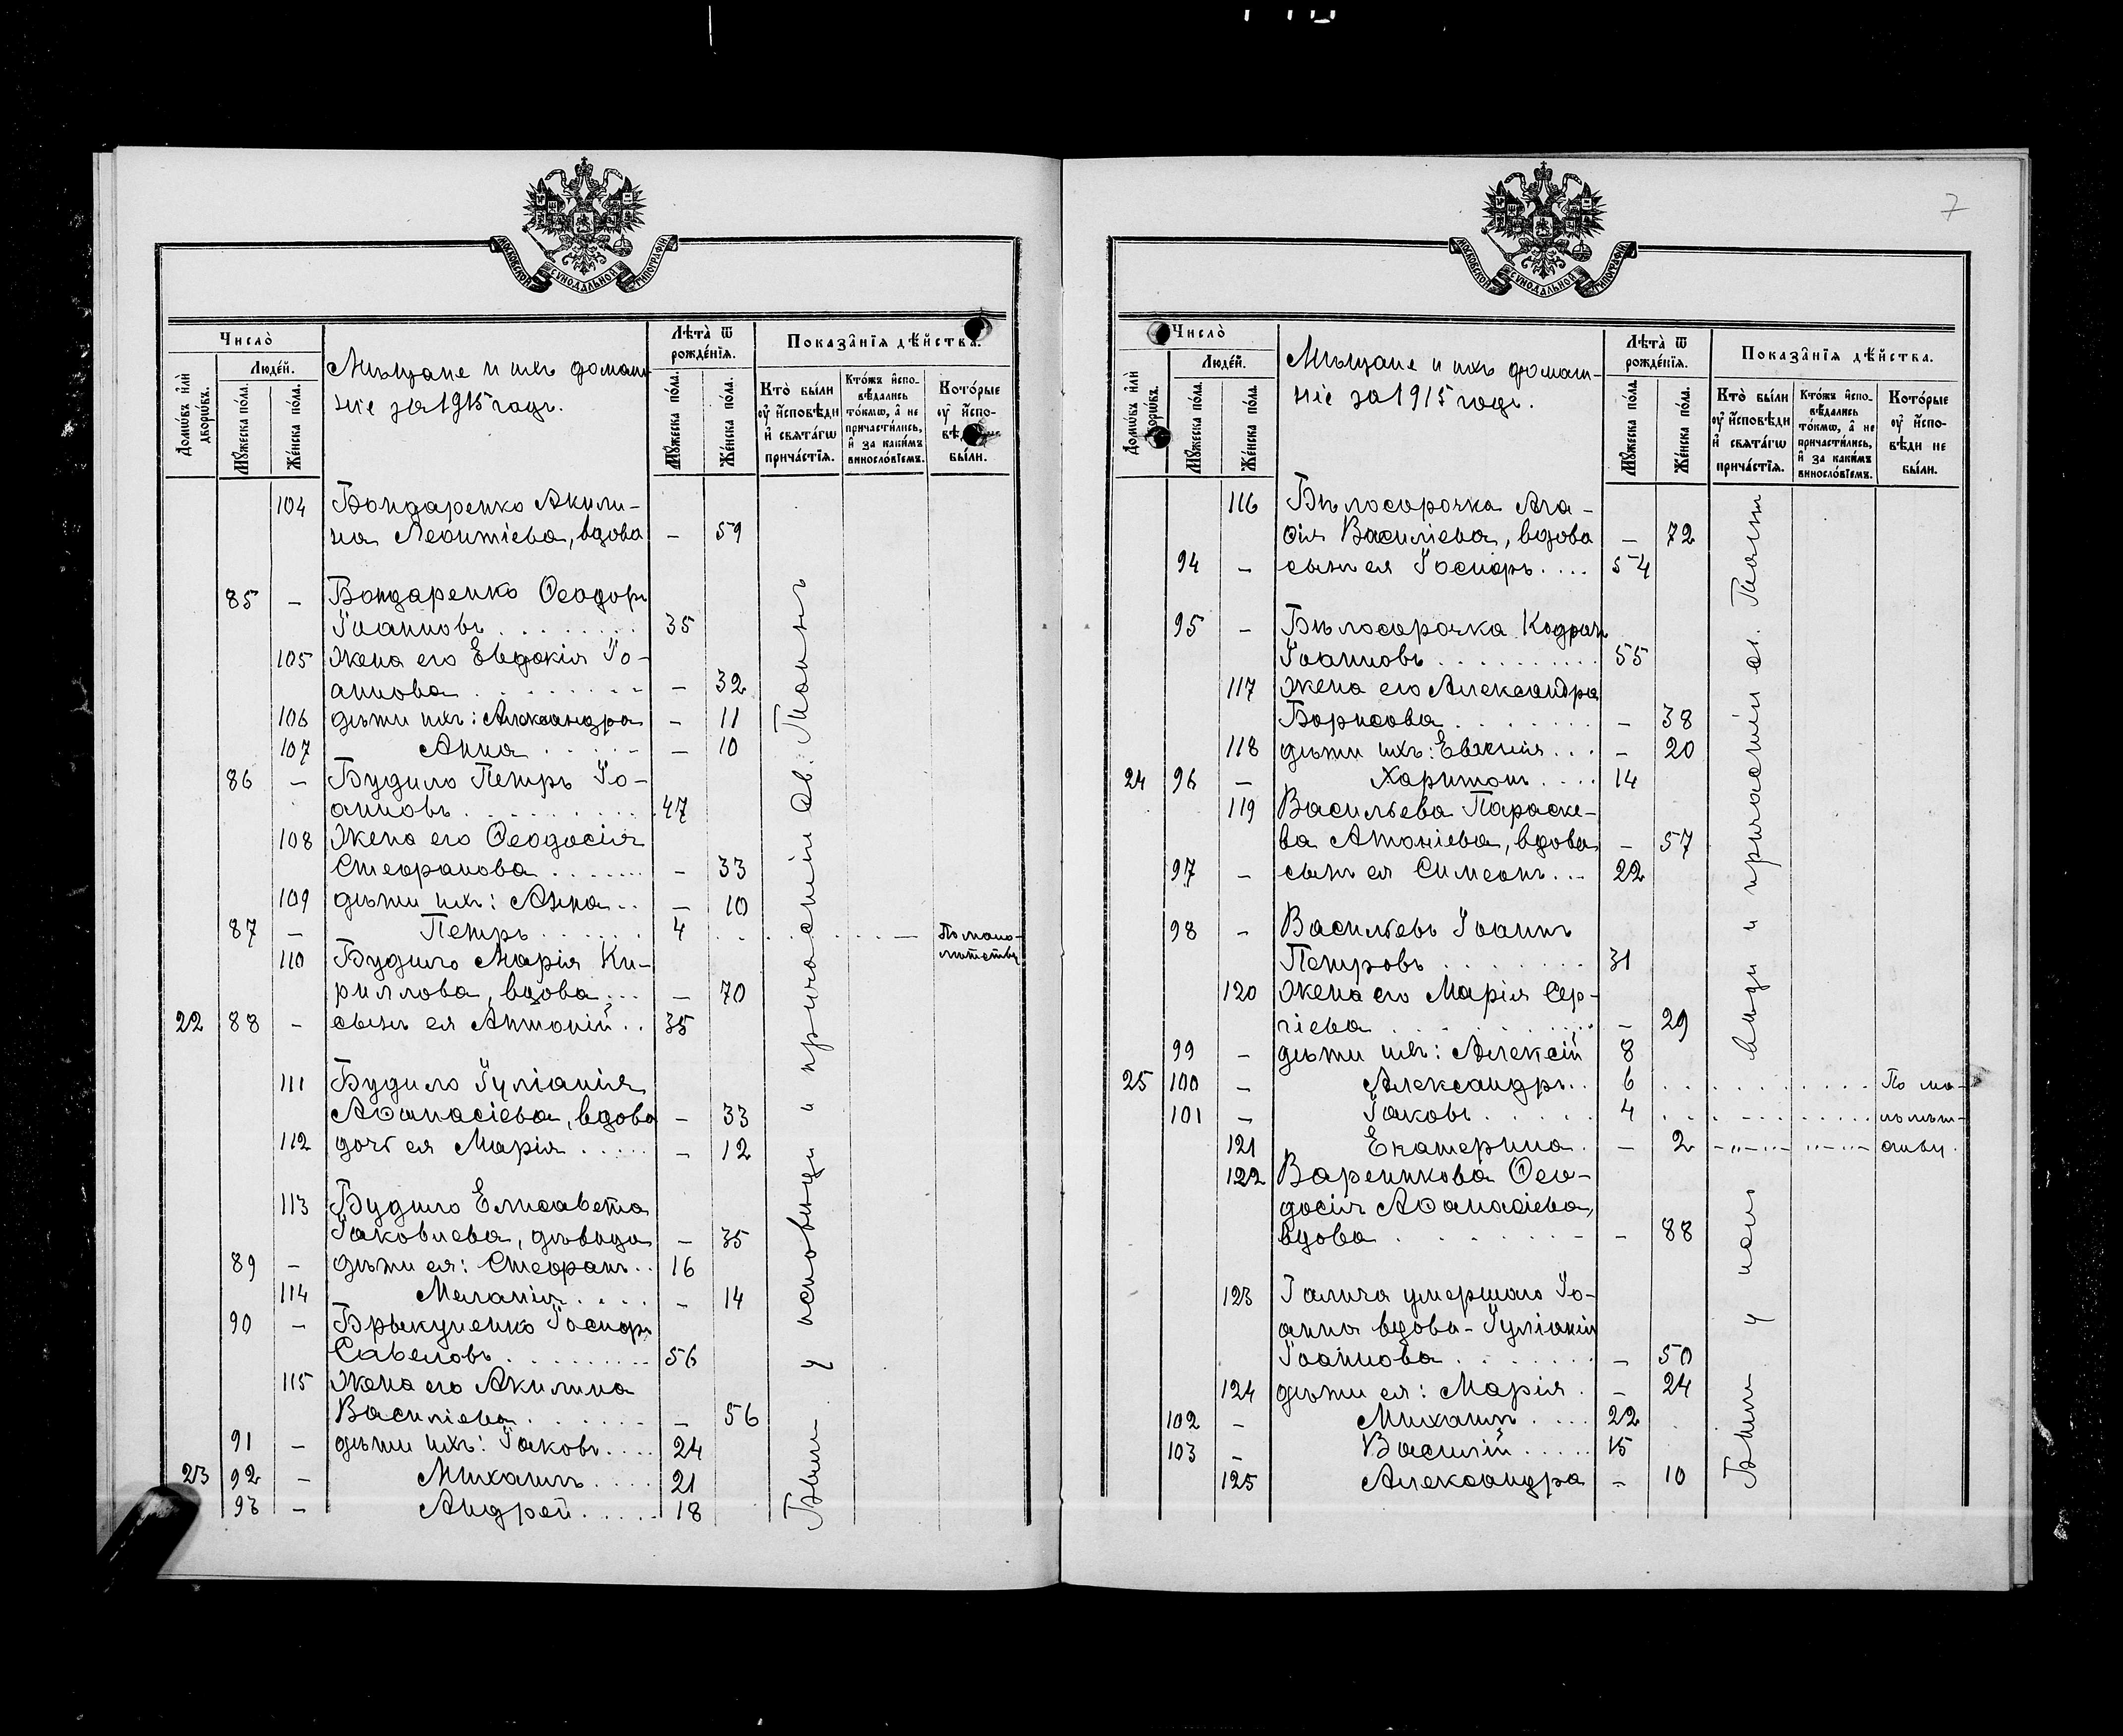 7
МОСКОВСКОЙ СѴНОДАЛЬНОЙ ТИПОГРАФІИ
Число̀
Людéй.
Домѡ́въ и҆лѝ дворѡ́въ.
Мꙋ́жеска по́ла.
Же́нска по́ла.
Мѣщане и ихъ домаш-
ніе за 1915 годъ.
Лѣта̀ ѿ рожде́нїѧ.
Мꙋ́жеска по́ла.
Же́нска по́ла.
Показа̑нїѧ дѣ́йства.
Кто̀ бы́ли оу҆ и҆сповѣ́ди и҆ свѧта́гѡ прича́стїѧ.
Кто́жъ и҆спо-вѣ́дались то́кмѡ, а҆ не причасти́лись, и҆ за каки́мъ виносло́вїемъ.
Кото́рые оу҆ и҆спо-вѣ́ди не бы́ли.
104 Бондаренко Акили-
на Леонтіева, вдова – 59
85 – Бондаренко Ѳеодоръ
Іоанновъ 35
105 Жена его Евдокія Іо-
аннова – 32
106 дѣти ихъ: Александра – 11
107 Анна – 10
86 – Будило Петръ Іо-
анновъ 47
108 Жена его Ѳеодосія
Стефанова – 33
109 дѣти ихъ: Анна – 10
87 – Петръ 4 По мало-
лѣтству
110 Будило Марія Ки-
риллова, вдова – 70
22 88 – сынъ ея Антоній 35
111 Будило Іуліанія
Аѳанасіева, вдова – 33
112 дочь ея Марія – 12
113 Будило Елисавета
Іаковлева, дѣвица – 35
89 – дѣти ея: Стефанъ 16
114 Меланія – 14
90 – Брыкуненко Іосифъ
Савеловъ 56
115 Жена его Акилина
Василіева – 56
91 – дѣти ихъ: Іаковъ 24
23 92 – Михаилъ 21
93 – Андрей 18
Были у исповѣди и причастіи Св. Таинъ
МОСКОВСКОЙ СѴНОДАЛЬНОЙ ТИПОГРАФІИ
Число̀
Людéй.
Домѡ́въ и҆лѝ дворѡ́въ.
Мꙋ́жеска по́ла.
Же́нска по́ла.
Мѣщане и ихъ домаш-
ніе за 1915 годъ.
Лѣта̀ ѿ рожде́нїѧ.
Мꙋ́жеска по́ла.
Же́нска по́ла.
Показа̑нїѧ дѣ́йства.
Кто̀ бы́ли оу҆ и҆сповѣ́ди и҆ свѧта́гѡ прича́стїѧ.
Кто́жъ и҆спо-вѣ́дались то́кмѡ, а҆ не причасти́лись, и҆ за каки́мъ виносло́вїемъ.
Кото́рые оу҆ и҆спо-вѣ́ди не бы́ли.
116 Бѣлосорочка Ага-
ѳія Василіева, вдова – 72
94 – сынъ ея Іосифъ 54
95 – Бѣлосорочка Кодратъ
Іоанновъ 55
117 Жена его Александра
Борисова – 38
118 дѣти ихъ: Евгенія – 20
24 96 – Харитонъ 14
119 Васильева Параске-
ва Антоніева, вдова – 57
97 – сынъ ея Симеонъ 22
98 – Васильевъ Іоаннъ
Петровъ 31
120 Жена его Марія Сер-
гіева – 29
99 – дѣти ихъ: Алексій 8
25 100 – Александръ 6 По ма-
101 – Іаковъ 4 лолѣт-
121 Екатерина – 2 ству.
122 Вареникова Ѳео-
досія Аѳанасіева,
вдова – 88
123 Галича умершаго Іо-
анна вдова - Іуліанія
Іоаннова – 50
124 дѣти ея: Марія – 24
102 – Михаилъ 22
103 – Василій 15
125 Александра – 10
Были у исповѣди и причастіи св. Таинъ